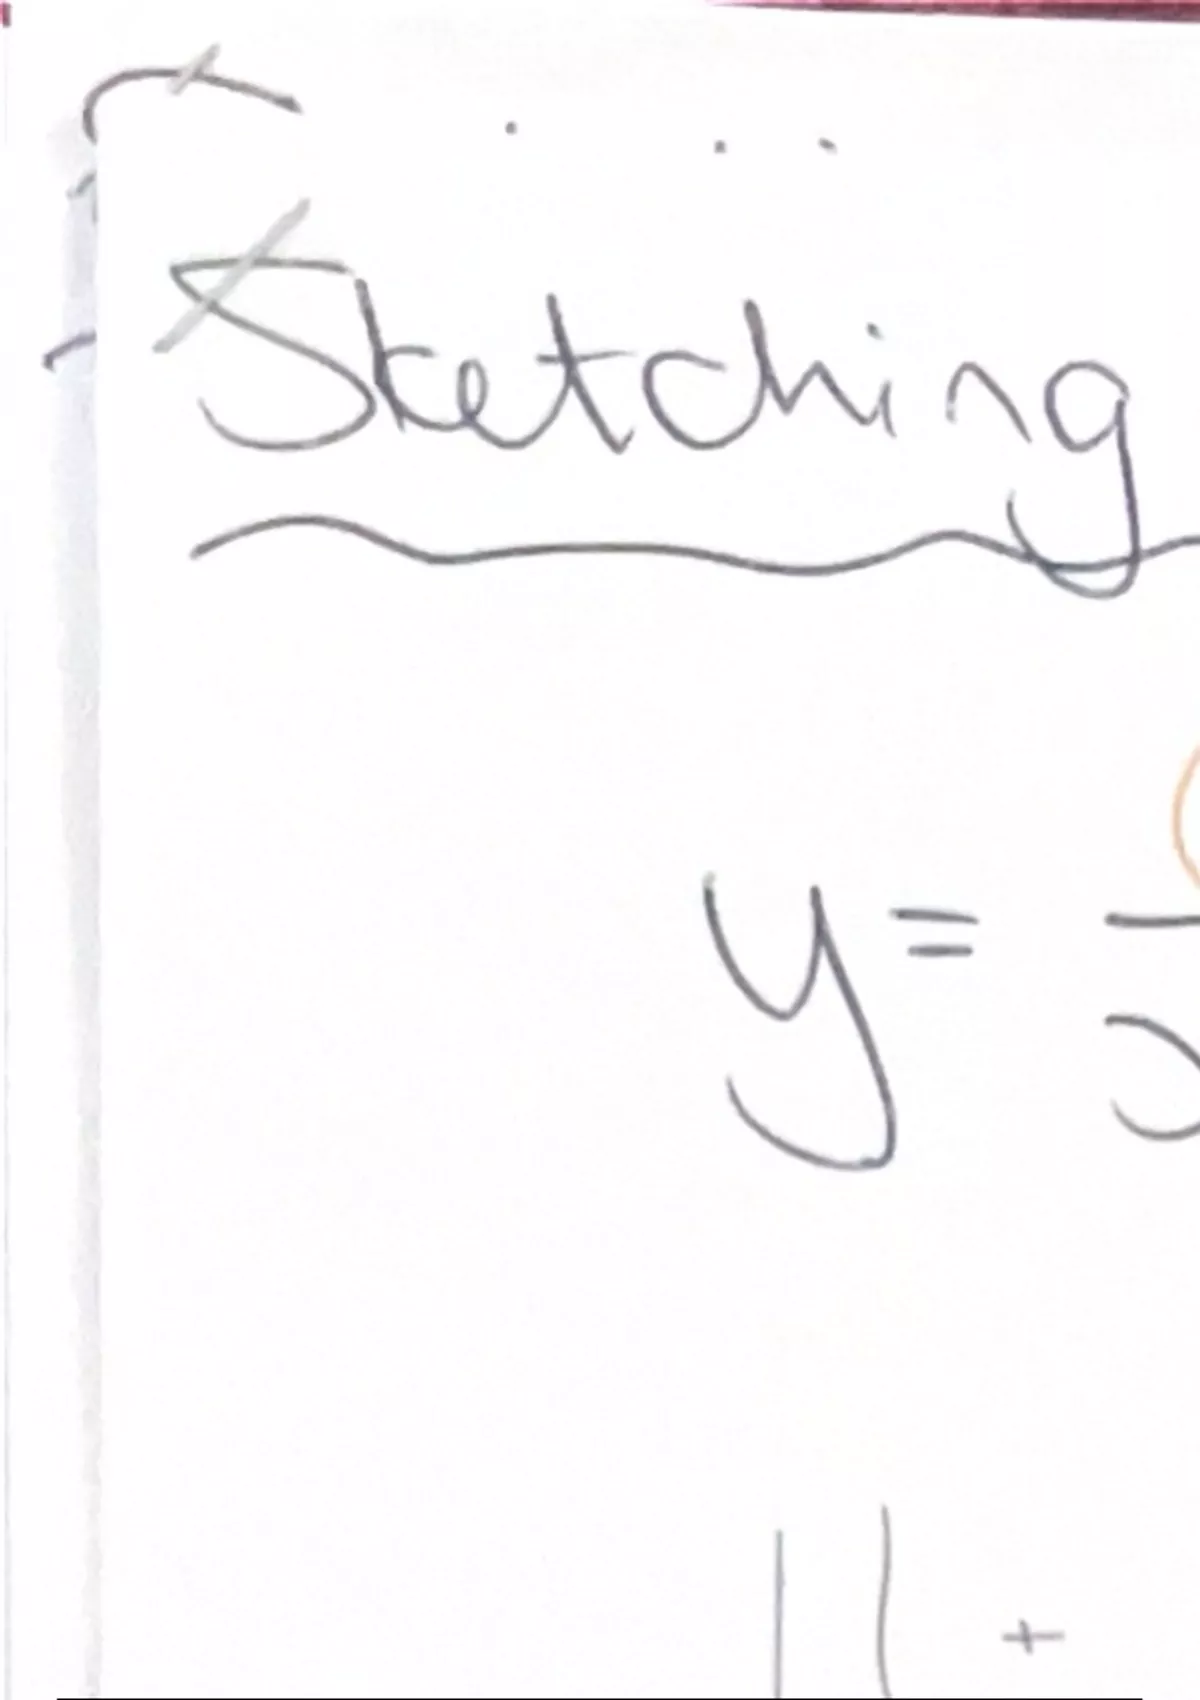 Sketching
y =
+